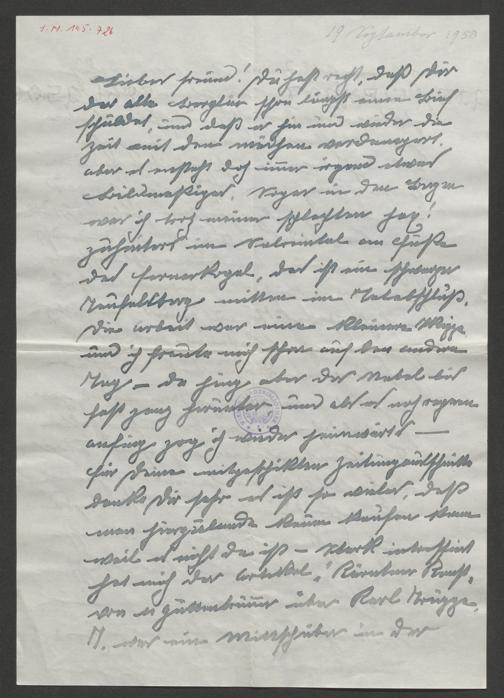 I.N. 145.786
19 September 1950
Lieber Freund! Du hast recht, daß Dir
der alte Berglar schon längst einen Brief
schuldet, und daß er hin und wieder die
Zeit mit dem
aber es entsteht doch immer irgend etwas
Bildmäßiges. Sogar in den Bergen
war ich trotz meiner schlechten Hax!
zuhinterst im am Fuße
des Fernerkogel, das ist ein schwarzer
Teufelsberg mitten im Talschluß.
Die Arbeit war eine kleinere Skizze
und ich freute mich schon auf den andern
Tag – da hing aber der Nebel bis
fast ganz herunter und als es noch regnen
anfing zog ich wieder heimwärts —
für Deine mitgeschickten Zeitungsausschnitte
danke Dir sehr es ist so vieles, daß
man hierzulande kaum kaufen kann
weil es nicht da ist – stark interessiert
hat mich der Artikel „Kärntner Kunst"
von Güttenbrunner über Karl Truppe.
T. war ein Mitschüler in der